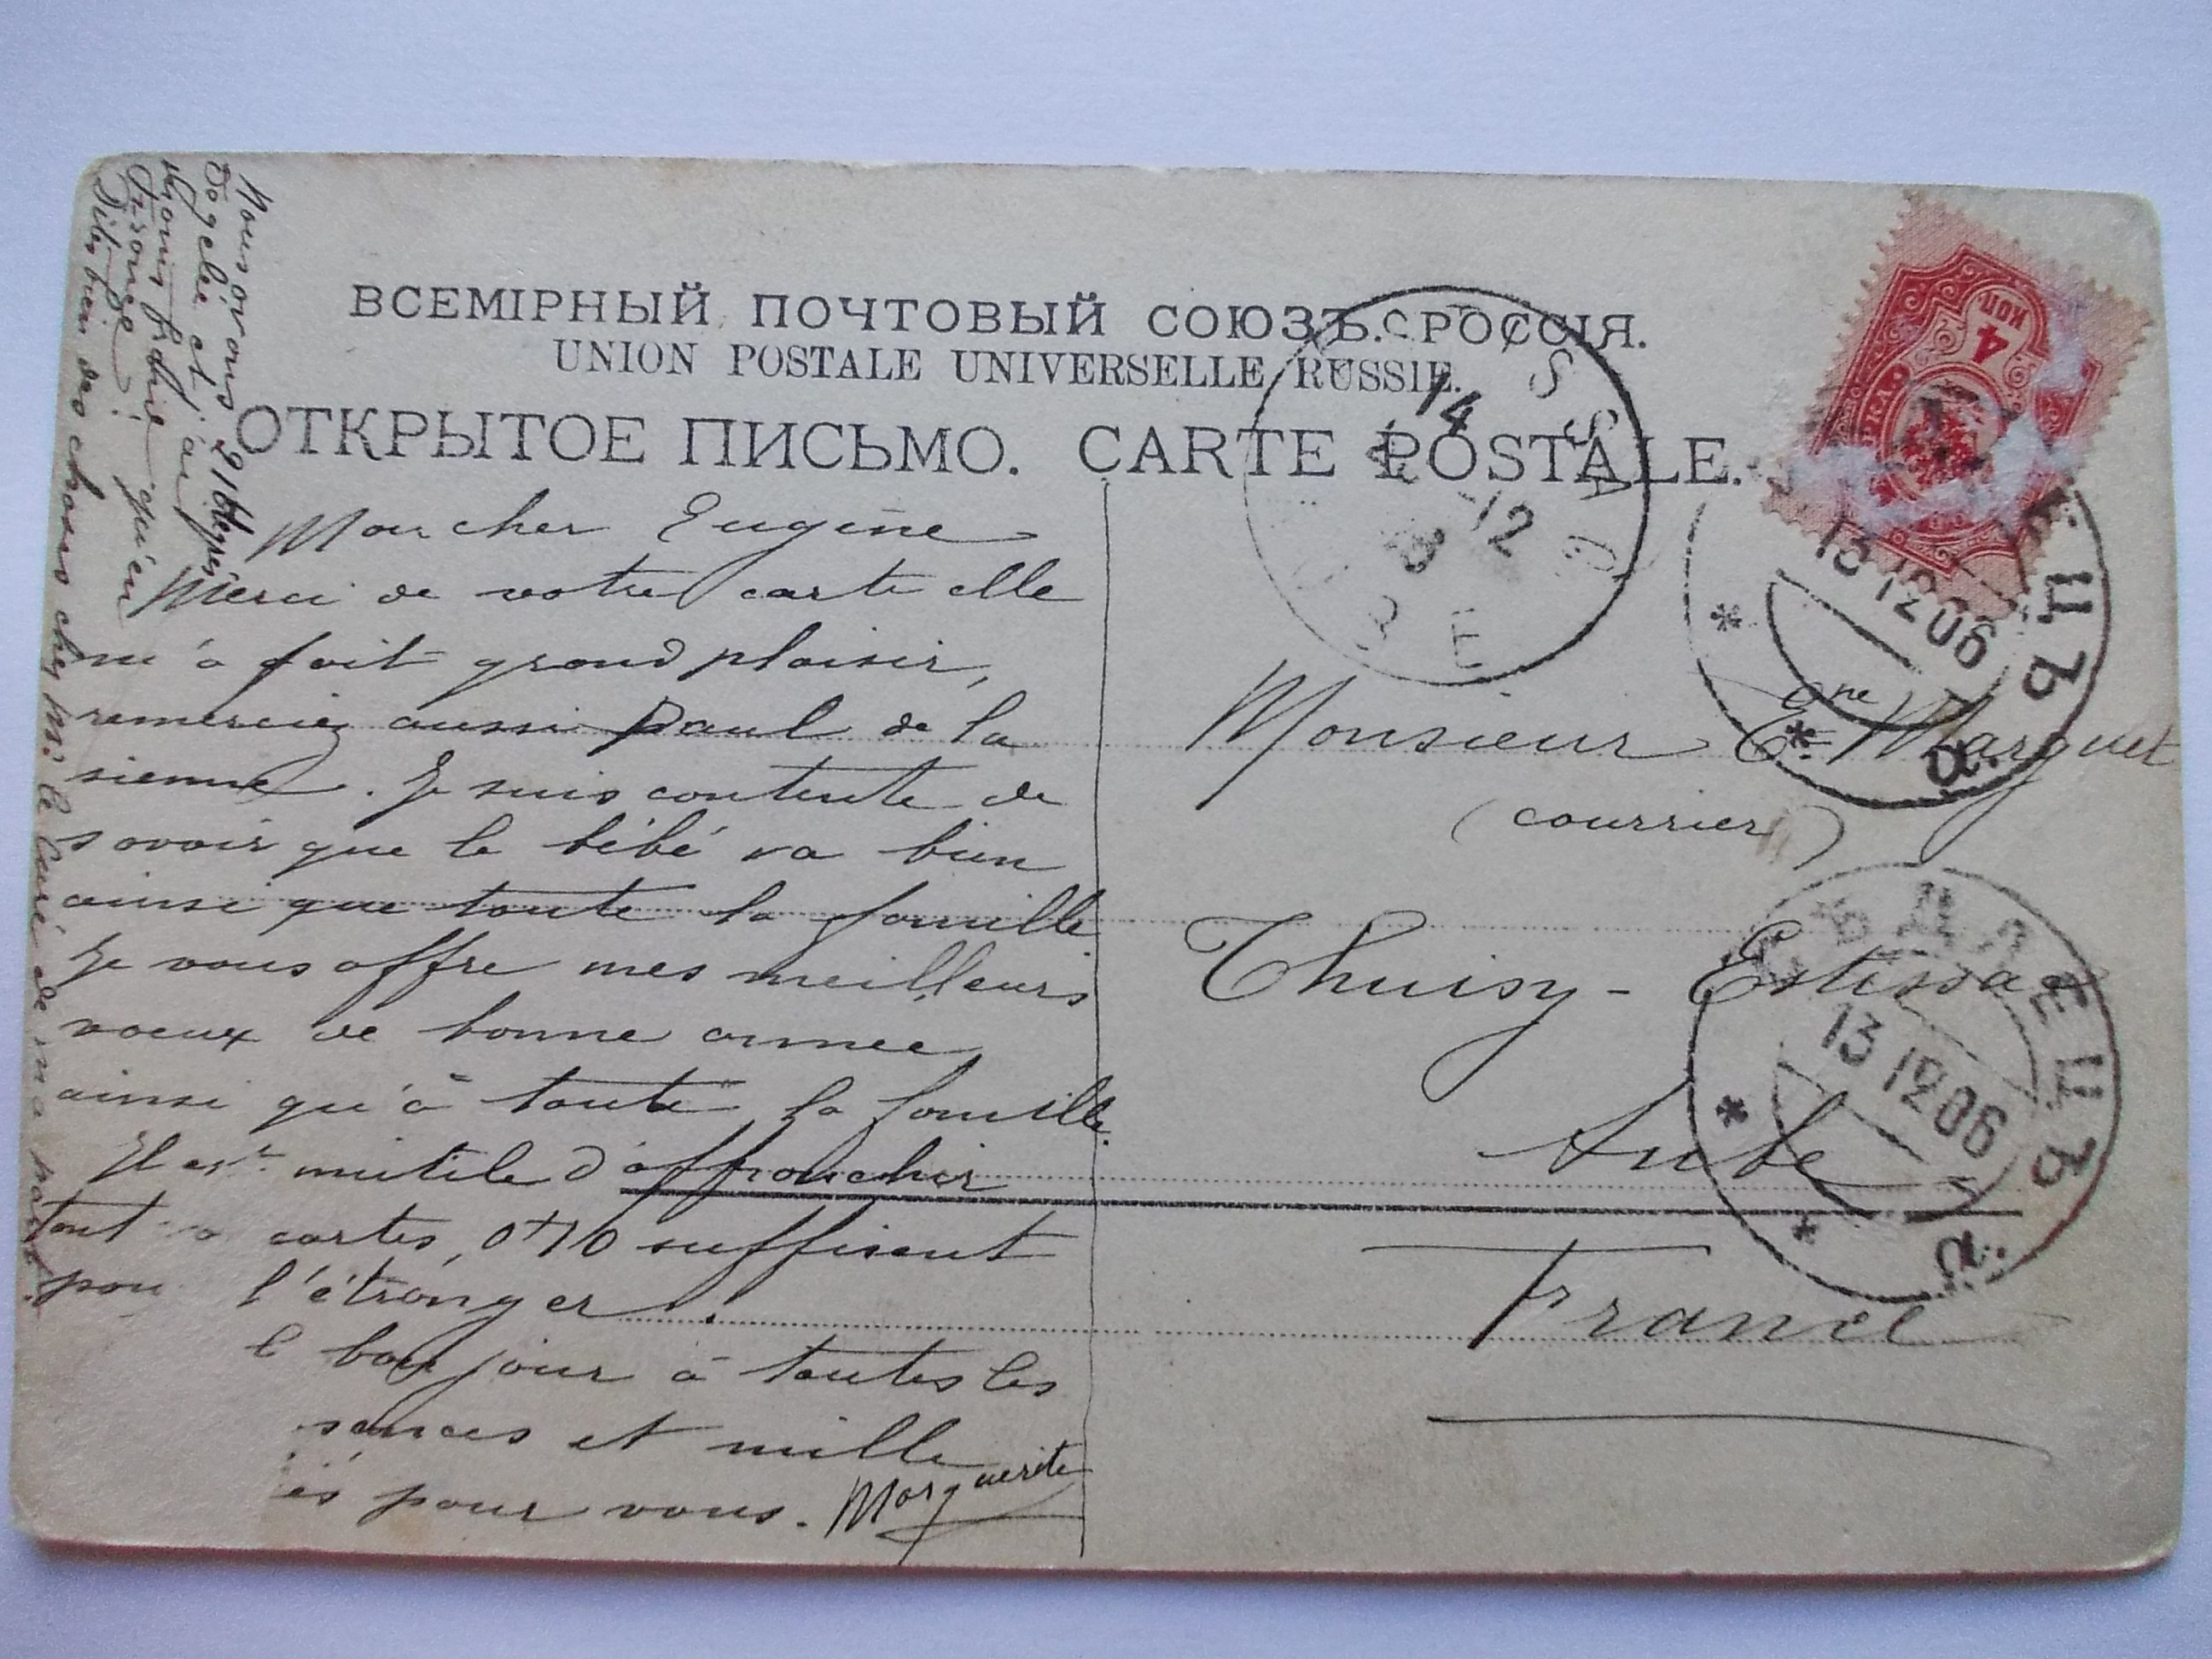 ВСЕМІРНЫЙ ПОЧТОВЫЙ СОЮЗЪ. РОССІЯ.
UNION POSTALE UNIVERSELLE RUSSIE.
ОТКРЫТОЕ ПИСЬМО. CARTE POSTALE.
4
КОП
Mon cher Eugène
Merci de votre carte elle
m'a fait grand plaisir,
remerciez aussi Paul de la
sienne. Je suis contente de
savoir que le bébé va bien
ainsi que toute la famille
Je vous offre mes meilleurs
voeux de bonne année
ainsi qu'à toute la famille.
Il est inutile d'affranchir
tant cartes, 0f10 suffisent
pour l'étranger.
bonjour à toutes les
et mille
pour vous. Marguerite
Nous avons 21
de gelée et
moins froid qu'en
France
Dites bien des choses chez Mr le Curé de ma part.
Monsieur Ene Marguet
(courrier)
Thuisy - Estissac
Aube
France
14
12
13 12 06
ЕЦЪ
13 12 06
ЕЛЕЦЪ